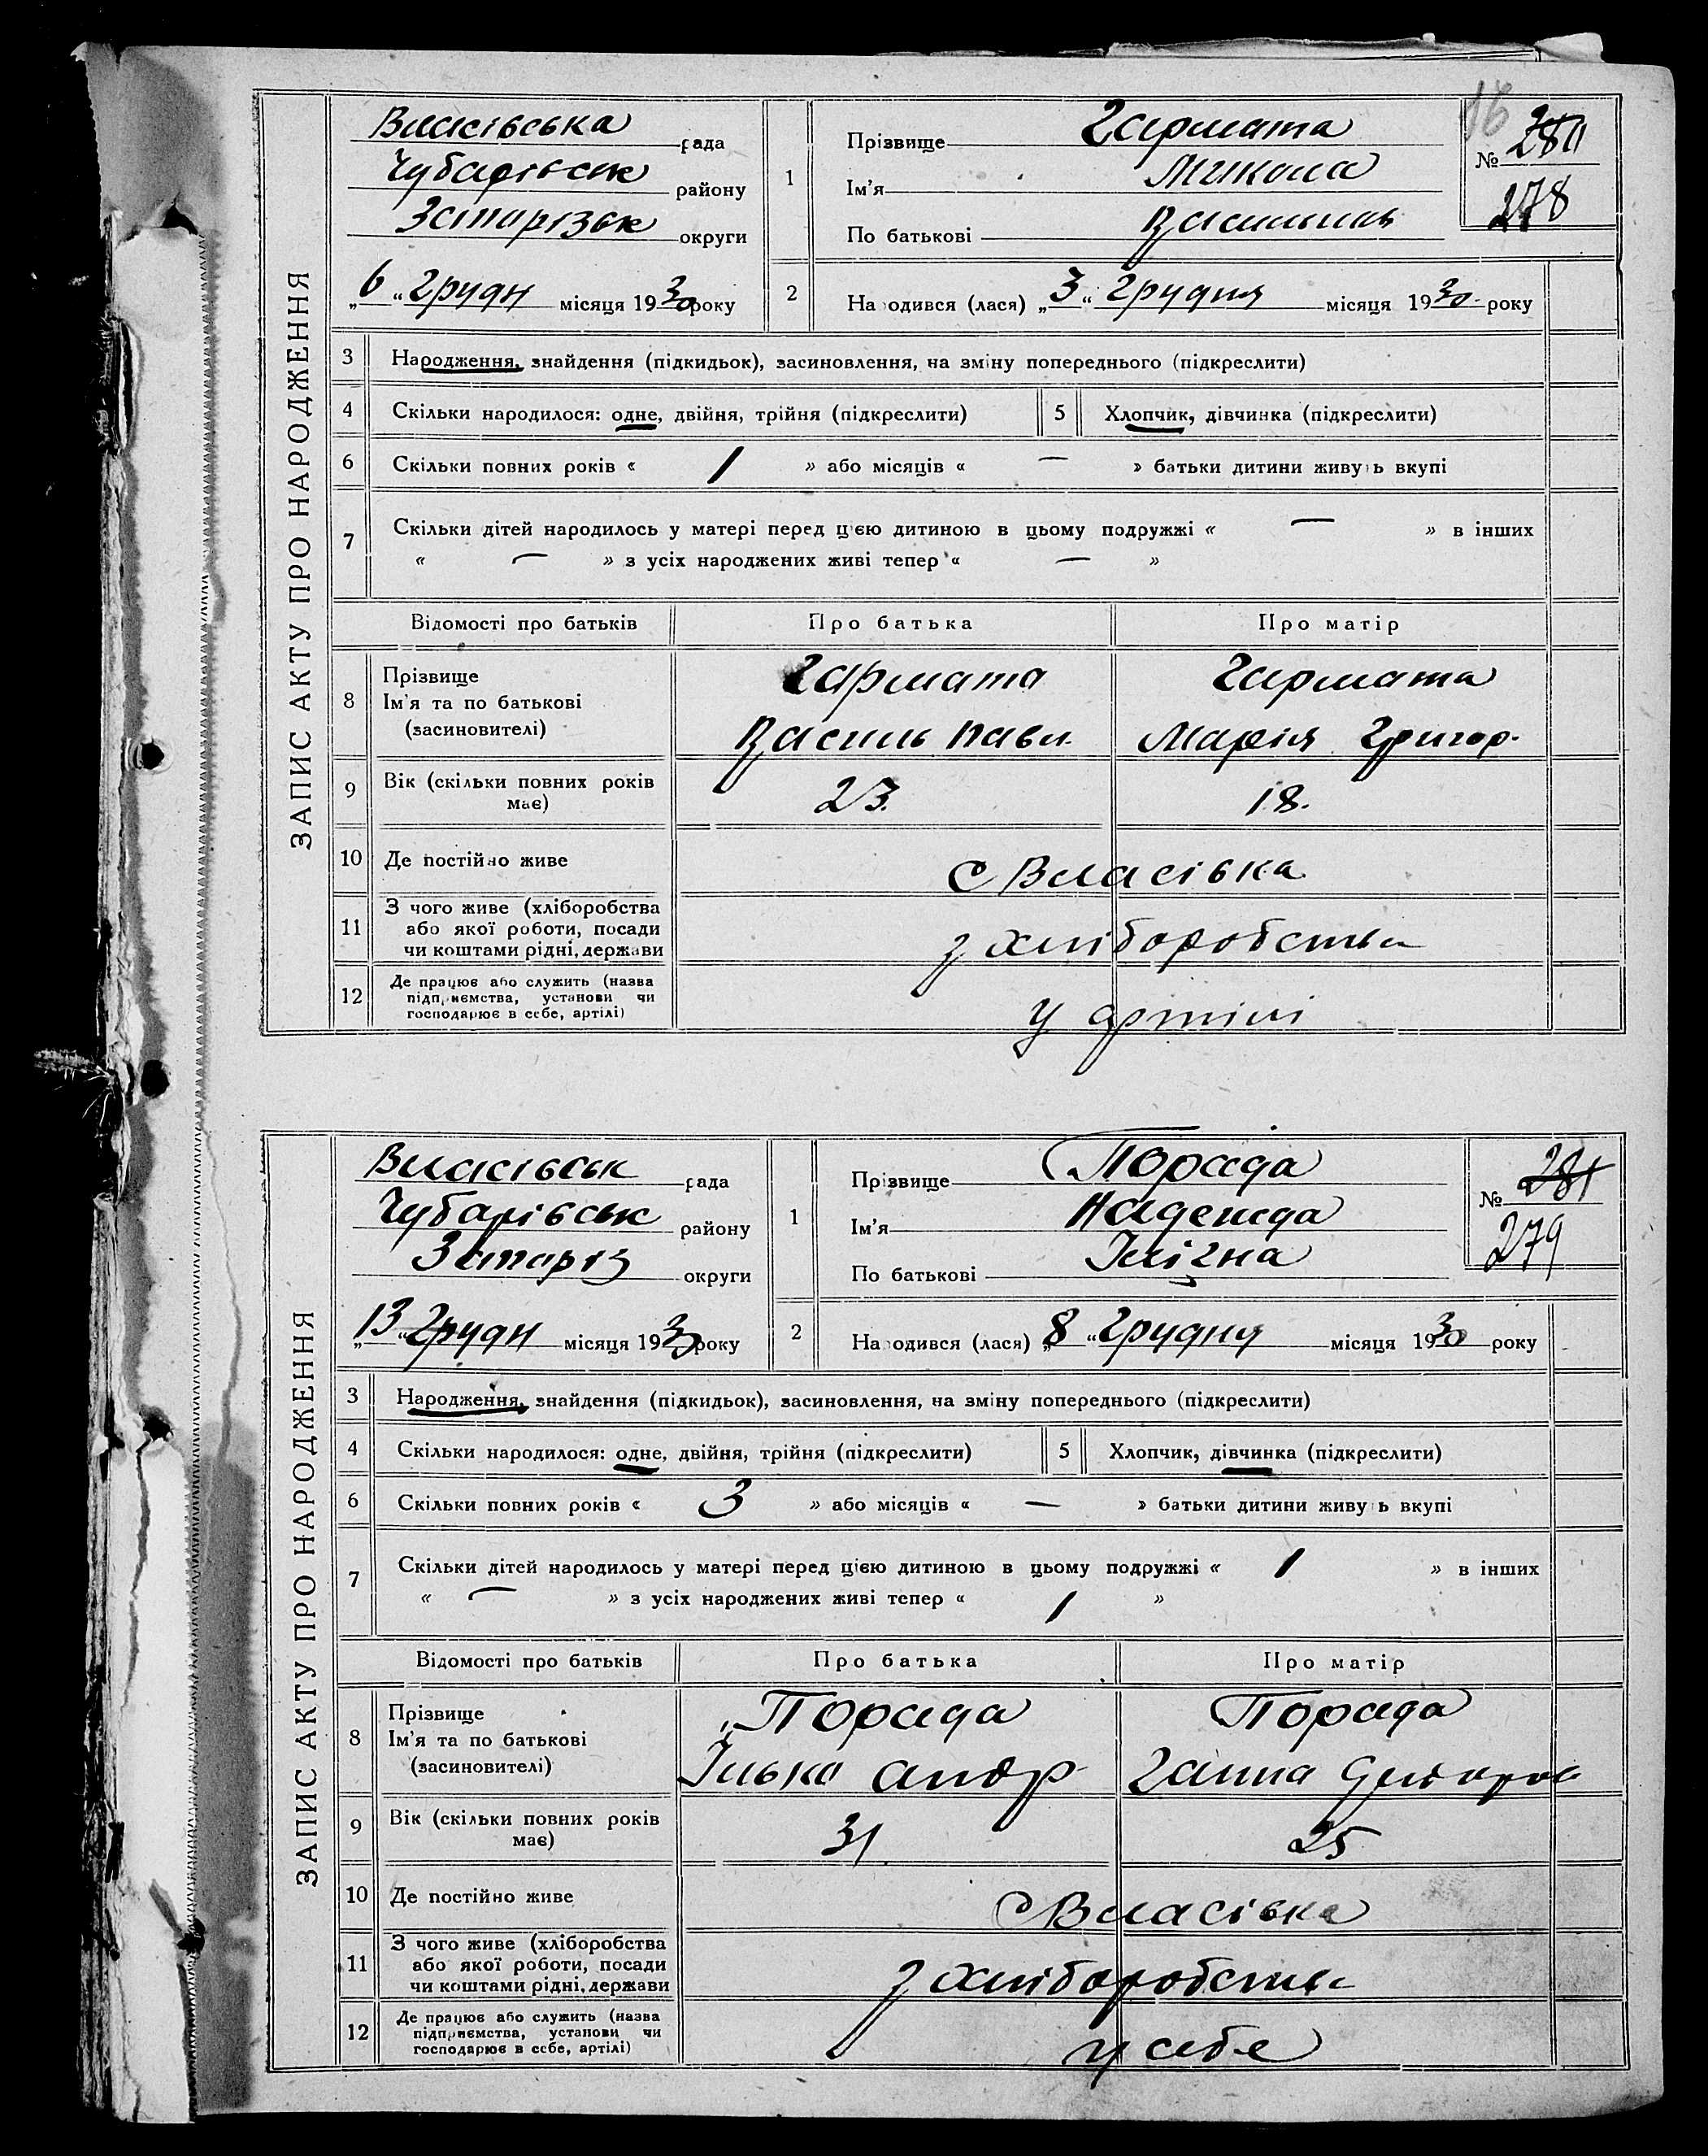 ЗАПИС АКТУ ПРО НАРОДЖЕННЯ
16
Власівська рада
Чубарівськ району
Запорізьк округи
„6“ Грудн місяця 1930 року
1
Прізвище Гармата
Ім'я Микола
По батькові
№ 280
278
2
Народився (лася) „3“ Грудня місяця 1930 року
3 Народження, знайдення (підкидьок), засиновлення, на зміну попереднього (підкреслити)
4 Скільки народилося: одне, двійня, трійня (підкреслити)
5 Хлопчик, дівчинка (підкреслити)
6 Скільки повних років « 1 » або місяців « — » батьки дитини живуть вкупі
7 Скільки дітей народилось у матері перед цією дитиною в цьому подружжі « — » в інших
« — » з усіх народжених живі тепер « — »
Відомості про батьків Про батька Про матір
8 Прізвище
Ім'я та по батькові
(засиновителі)
Гармата Гармата
Василь Павл. Марія Григор.
9 Вік (скільки повних років
має)
23. 18.
10 Де постійно живе с Власівка
11 З чого живе (хліборобства
або якої роботи, посади
чи коштами рідні, держави
з хліборобства
12 Де працює або служить (назва
підприємства, установи чи
господарює в себе, артілі)
у артілі
ЗАПИС АКТУ ПРО НАРОДЖЕННЯ
Власівськ рада
Чубарівськ району
Запоріз округи
„13“ Грудн місяця 1930 року
1
Прізвище Порада
Ім'я Надежда
По батькові Ілічна
№ 281
279
2
Народився (лася) „8“ Грудня місяця 1930 року
3 Народження, знайдення (підкидьок), засиновлення, на зміну попереднього (підкреслити)
4 Скільки народилося: одне, двійня, трійня (підкреслити)
5 Хлопчик, дівчинка (підкреслити)
6 Скільки повних років « 3 » або місяців « — » батьки дитини живуть вкупі
7 Скільки дітей народилось у матері перед цією дитиною в цьому подружжі « 1 » в інших
« — » з усіх народжених живі тепер « 1 »
Відомості про батьків Про батька Про матір
8 Прізвище
Ім'я та по батькові
(засиновителі)
Порада Порада
Ілько Андр Ганна
9 Вік (скільки повних років
має)
31 25
10 Де постійно живе с Власівка
11 З чого живе (хліборобства
або якої роботи, посади
чи коштами рідні, держави
з хліборобства
12 Де працює або служить (назва
підприємства, установи чи
господарює в себе, артілі)
у себе